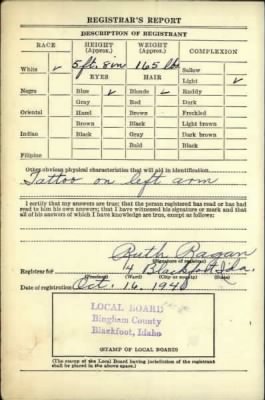 REGISTRAR'S REPORT
DESCRIPTION OF REGISTRANT
RACE HEIGHT (Approx.) WEIGHT (Approx.) COMPLEXION
White ✓ 5 ft. 8 in 165 lbs Sallow
EYES HAIR Light ✓
Negro Blue ✓ Blonde ✓ Ruddy
Gray Red Dark
Oriental Hazel Brown Freckled
Brown Black Light brown
Indian Black Gray Dark brown
Bald Black
Filipino
Other obvious physical characteristics that will aid in identification
Tattoo on left arm
I certify that my answers are true; that the person registered has read or has had read to him his own answers; that I have witnessed his signature or mark and that all of his answers of which I have knowledge are true, except as follows:
Ruth Ragan
(Signature of registrar)
Registrar for 4 Blackfoot Ida.
(Precinct) (Ward) (City or county) (State)
Date of registration Oct. 16. 1940
LOCAL BOARD
Bingham County
Blackfoot, Idaho
(STAMP OF LOCAL BOARD)
(The stamp of the Local Board having jurisdiction of the registrant
shall be placed in the above space.)